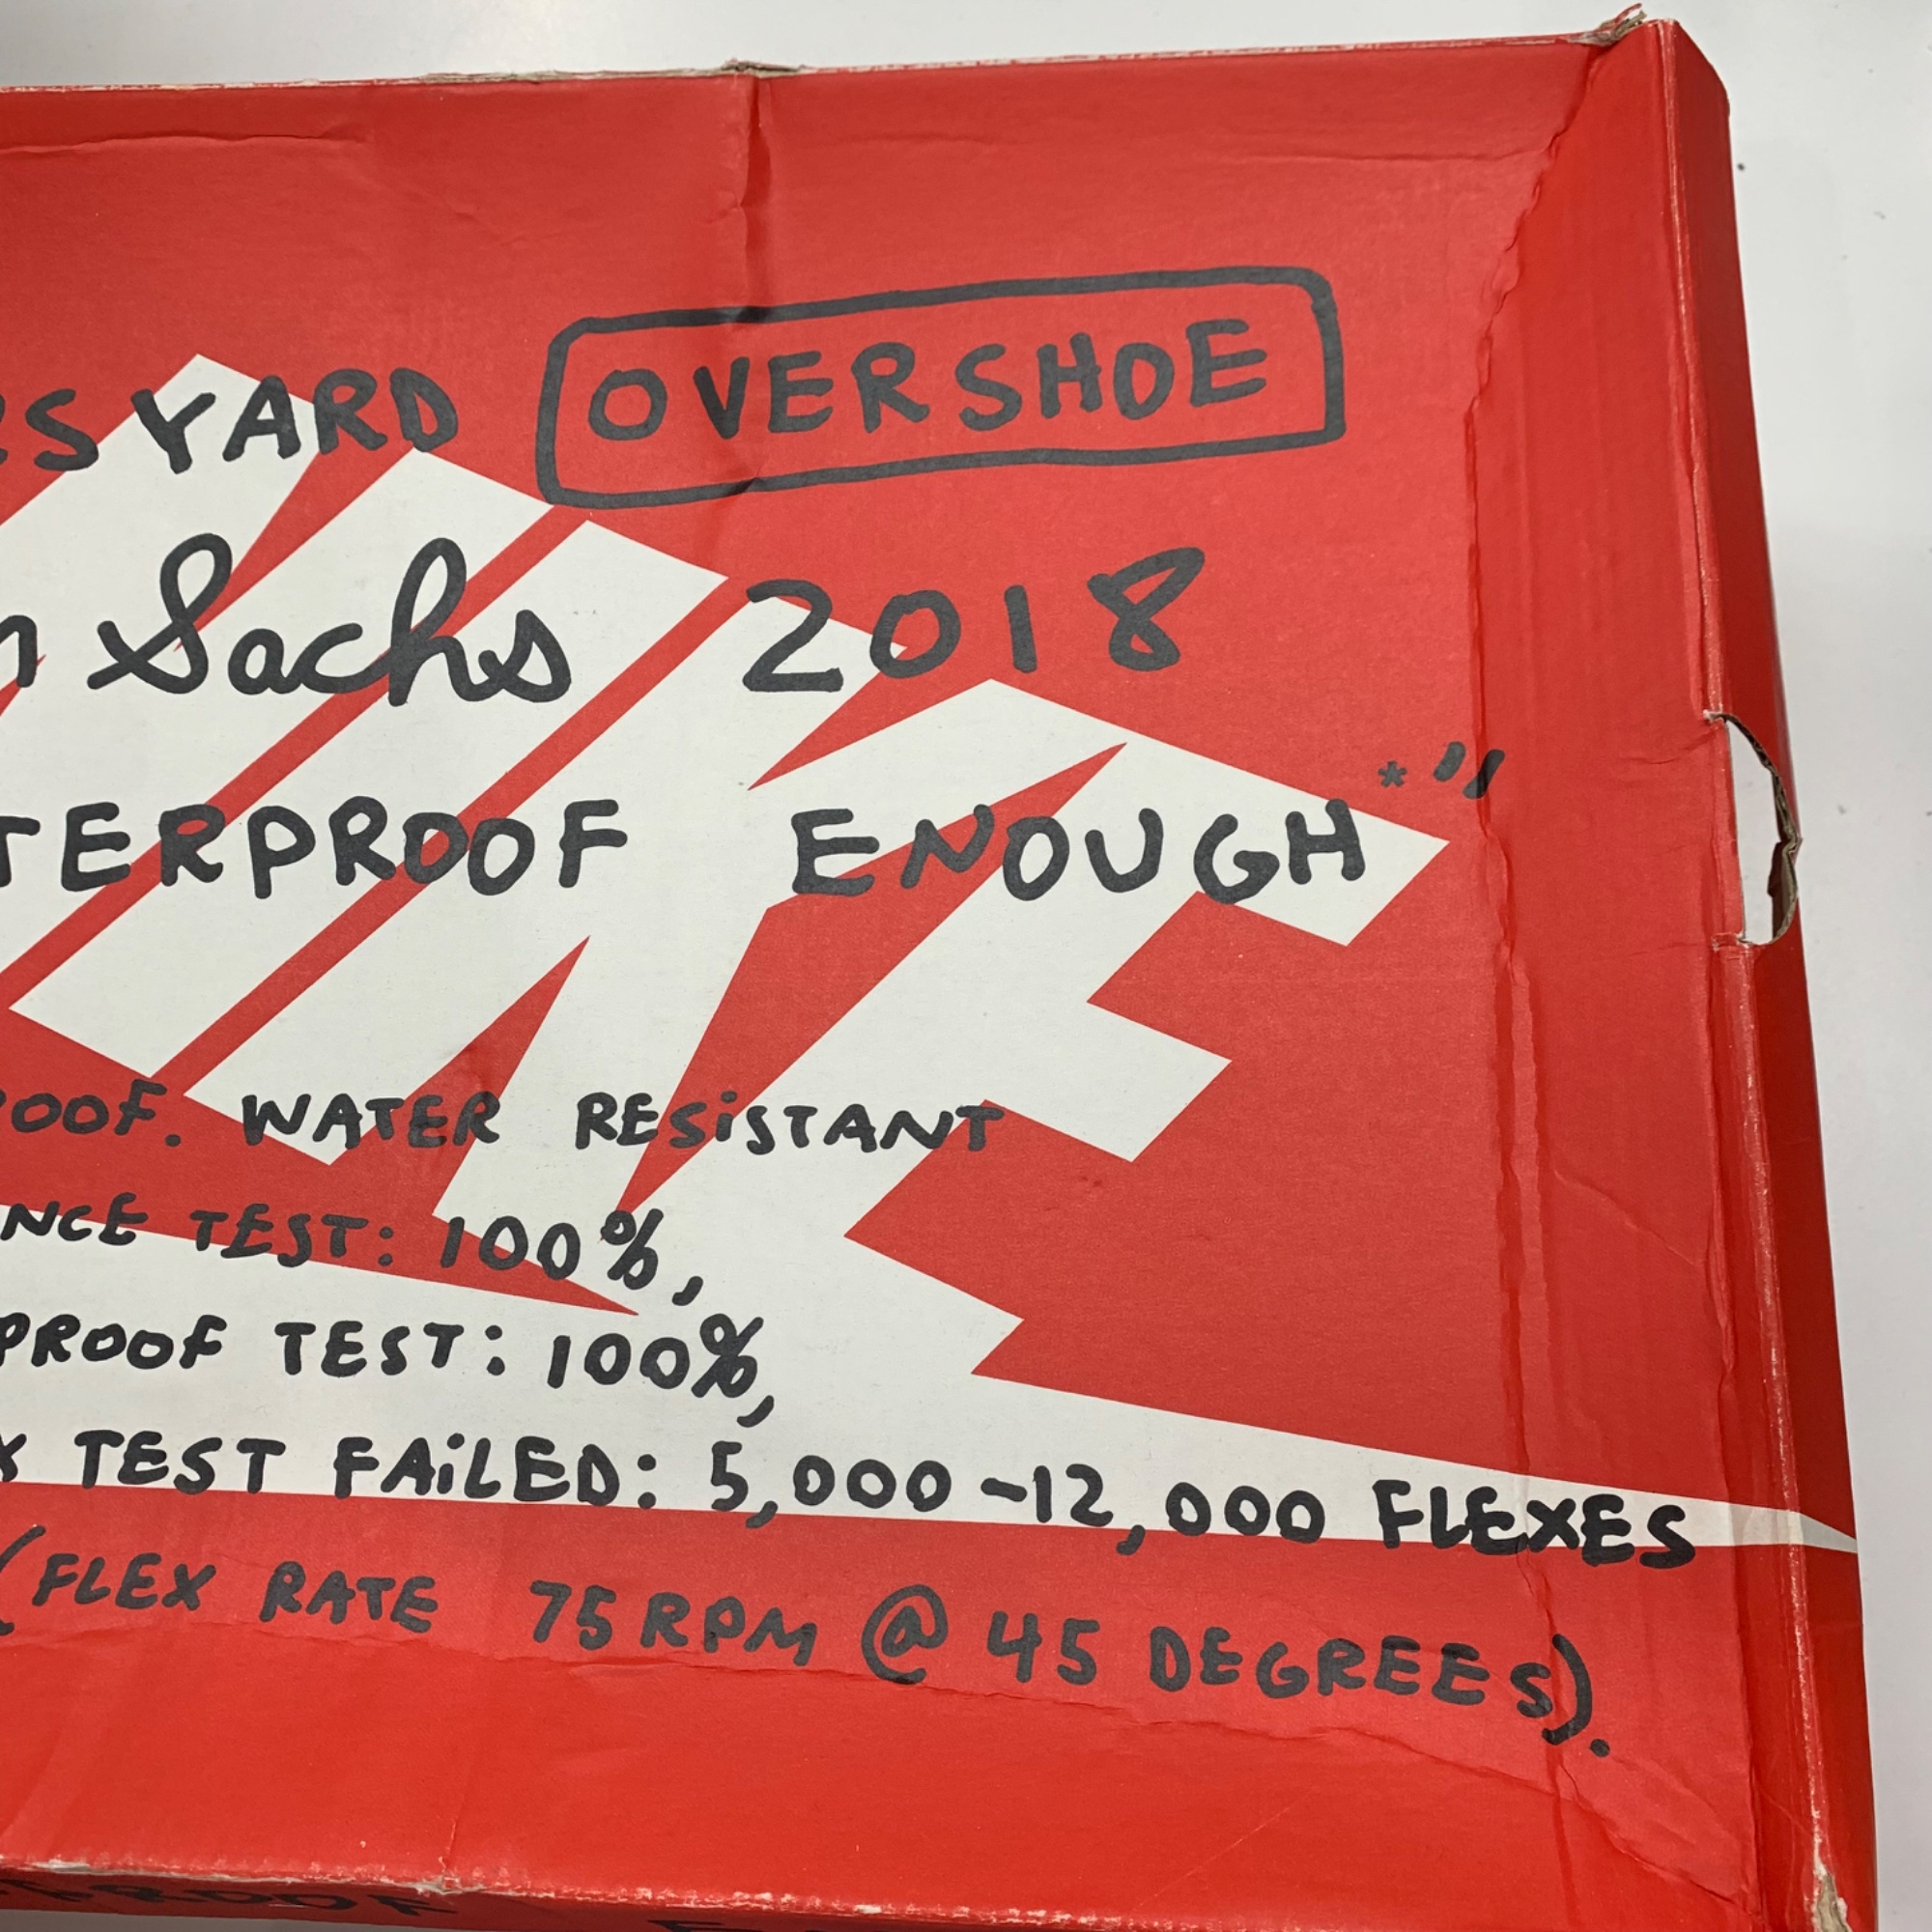 RS YARD OVERSHOE
Sachs 2018
TERPROOF ENOUGH*"
ROOF. WATER RESiSTANT
NCE TEST: 100%,
PROOF TEST: 100%,
X TEST FAiLED: 5,000-12,000 FLEXES
(FLEX RATE 75RPM @ 45 DEGREES).